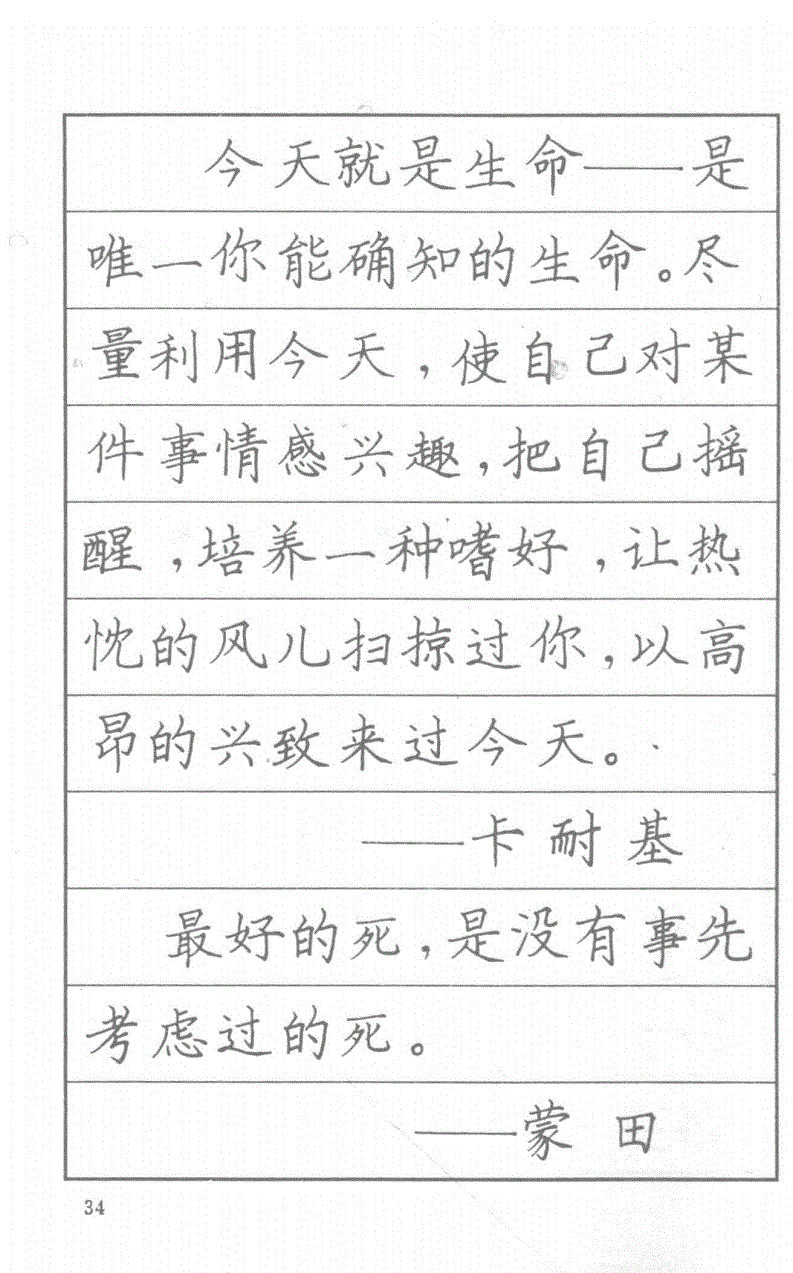 今天就是生命——是
唯一你能确知的生命。尽
量利用今天,使自己对某
件事情感兴趣,把自己摇
醒,培养一种嗜好,让热
忱的风儿扫掠过你,以高
昂的兴致来过今天。
——卡耐基
最好的死,是没有事先
考虑过的死。
——蒙田
34